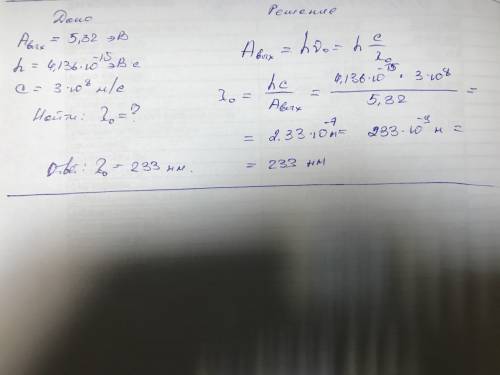 Дано
Aвых = 5,32 эВ
h = 4,136·10⁻¹⁵ эВ с
c = 3·10⁸ м/с
Найти: λ₀ = ?
Отв: λ₀ – 233 нм.
Решение
Aвых = hν₀ = h c/λ₀
λ₀ = hc/Aвых = 4,136·10⁻¹⁵ · 3·10⁸/5,32 =
= 2.33·10⁻⁷ м = 233·10⁻⁹ м =
= 233 нм